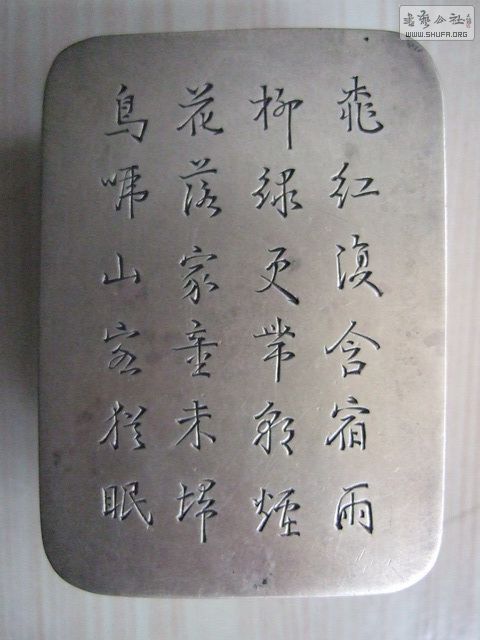 桃紅復含宿雨
柳綠更帶朝煙
花落家童未埽
鳥啼山客猶眠
書藝公社
WWW.SHUFA.ORG